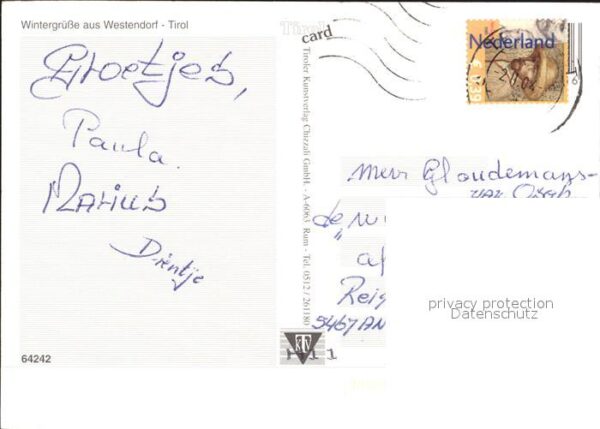 Wintergrüße aus Westendorf - Tirol
Groetjes,
Paula
Marius
Dientje
64242
Tirol
card
Tiroler Kunstverlag Chizzali GmbH. - A-6063 Rum - Tel. 0512 / 261180
KTV
Nederland
€ 0,39
Mevr Gloudemans-
van
de
af
Reig
5467AN
privacy protection
Datenschutz